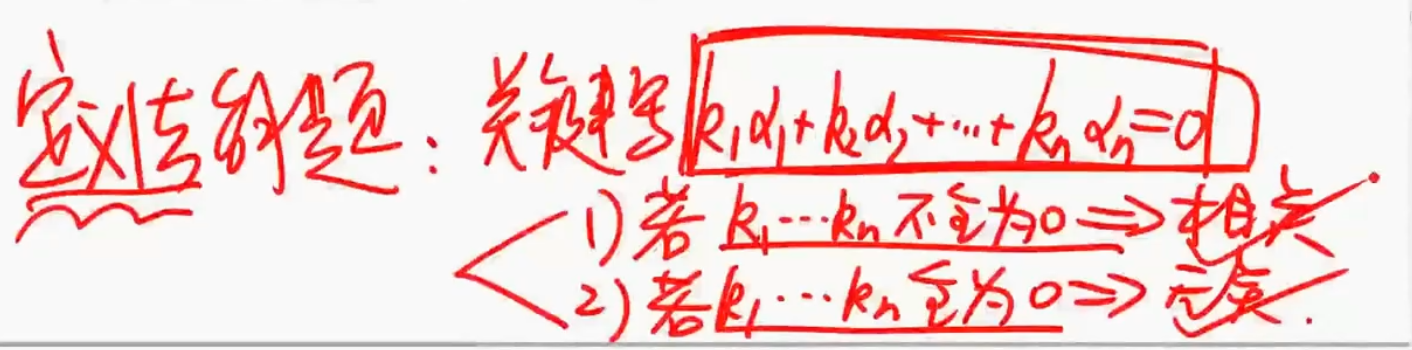 定义法解题：关键写 k₁α₁+k₂α₂+…+kₙαₙ=0
1) 若 k₁…kₙ 不全为0 ⇒ 相关
2) 若 k₁…kₙ 全为0 ⇒ 无关.